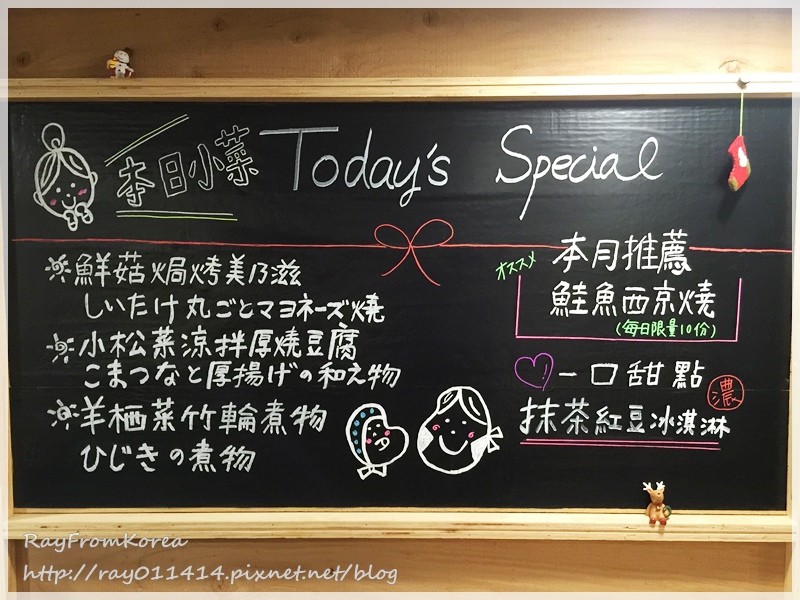 本日小菜 Today's Special
鮮菇焗烤美乃滋
しいたけ丸ごとマヨネーズ焼
小松菜涼拌厚燒豆腐
こまつなと厚揚げの和え物
羊栖菜竹輪煮物
ひじきの煮物
オススメ 本月推薦
鮭魚西京燒
(每日限量10份)
一口甜點
濃
抹茶紅豆冰淇淋
RayFromKorea
http://ray011414.pixnet.net/blog